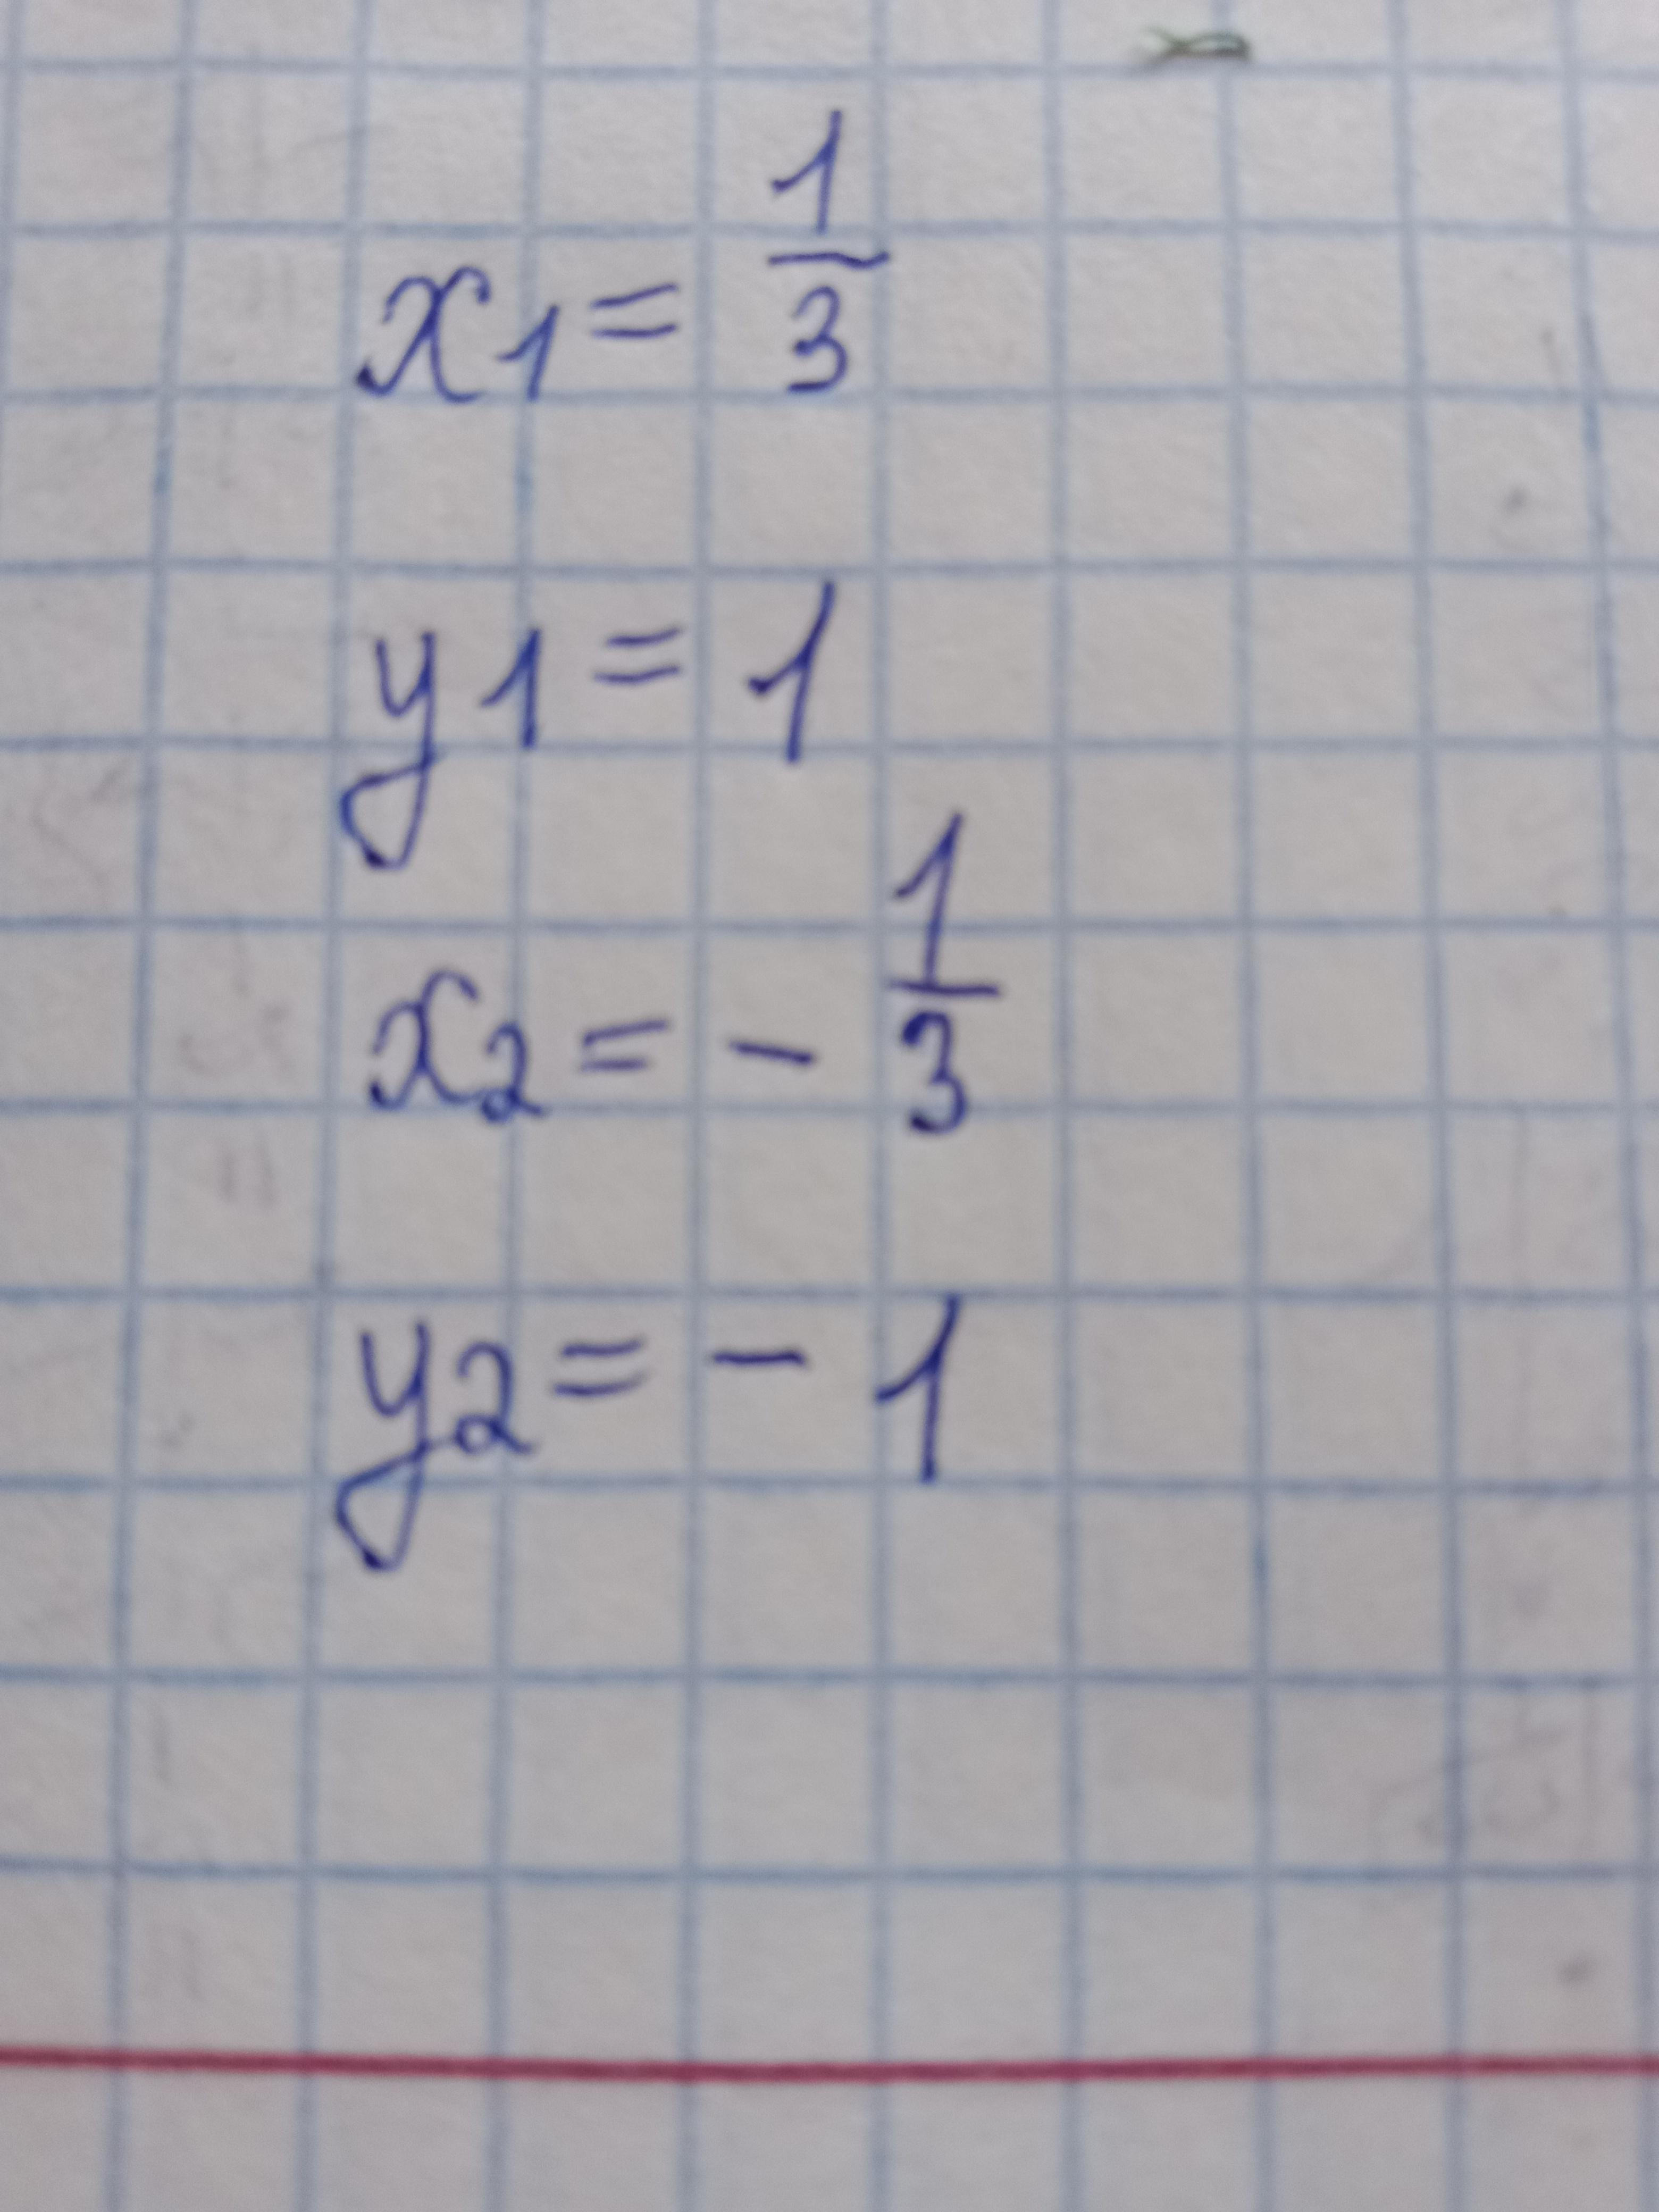 x1 = 1/3
y1 = 1
x2 = - 1/3
y2 = - 1